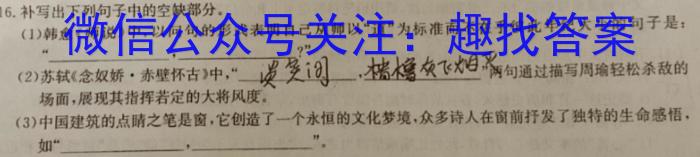 16. 补写出下列句子中的空缺部分。
(1)韩愈《师说》中,以问句的形式表明自己从师以“道”为标准而 年 大 的句子是:
微信公众号关注:趣找答案
“ , ?”
(2)苏轼《念奴娇·赤壁怀古》中,“谈笑间,樯橹灰飞烟灭”两句通过描写周瑜轻松杀敌的
场面,展现其指挥若定的大将风度。
(3)中国建筑的点睛之笔是窗,它创造了一个永恒的文化梦境,众多诗人在窗前抒发了独特的生命感悟,
如“ , ”。